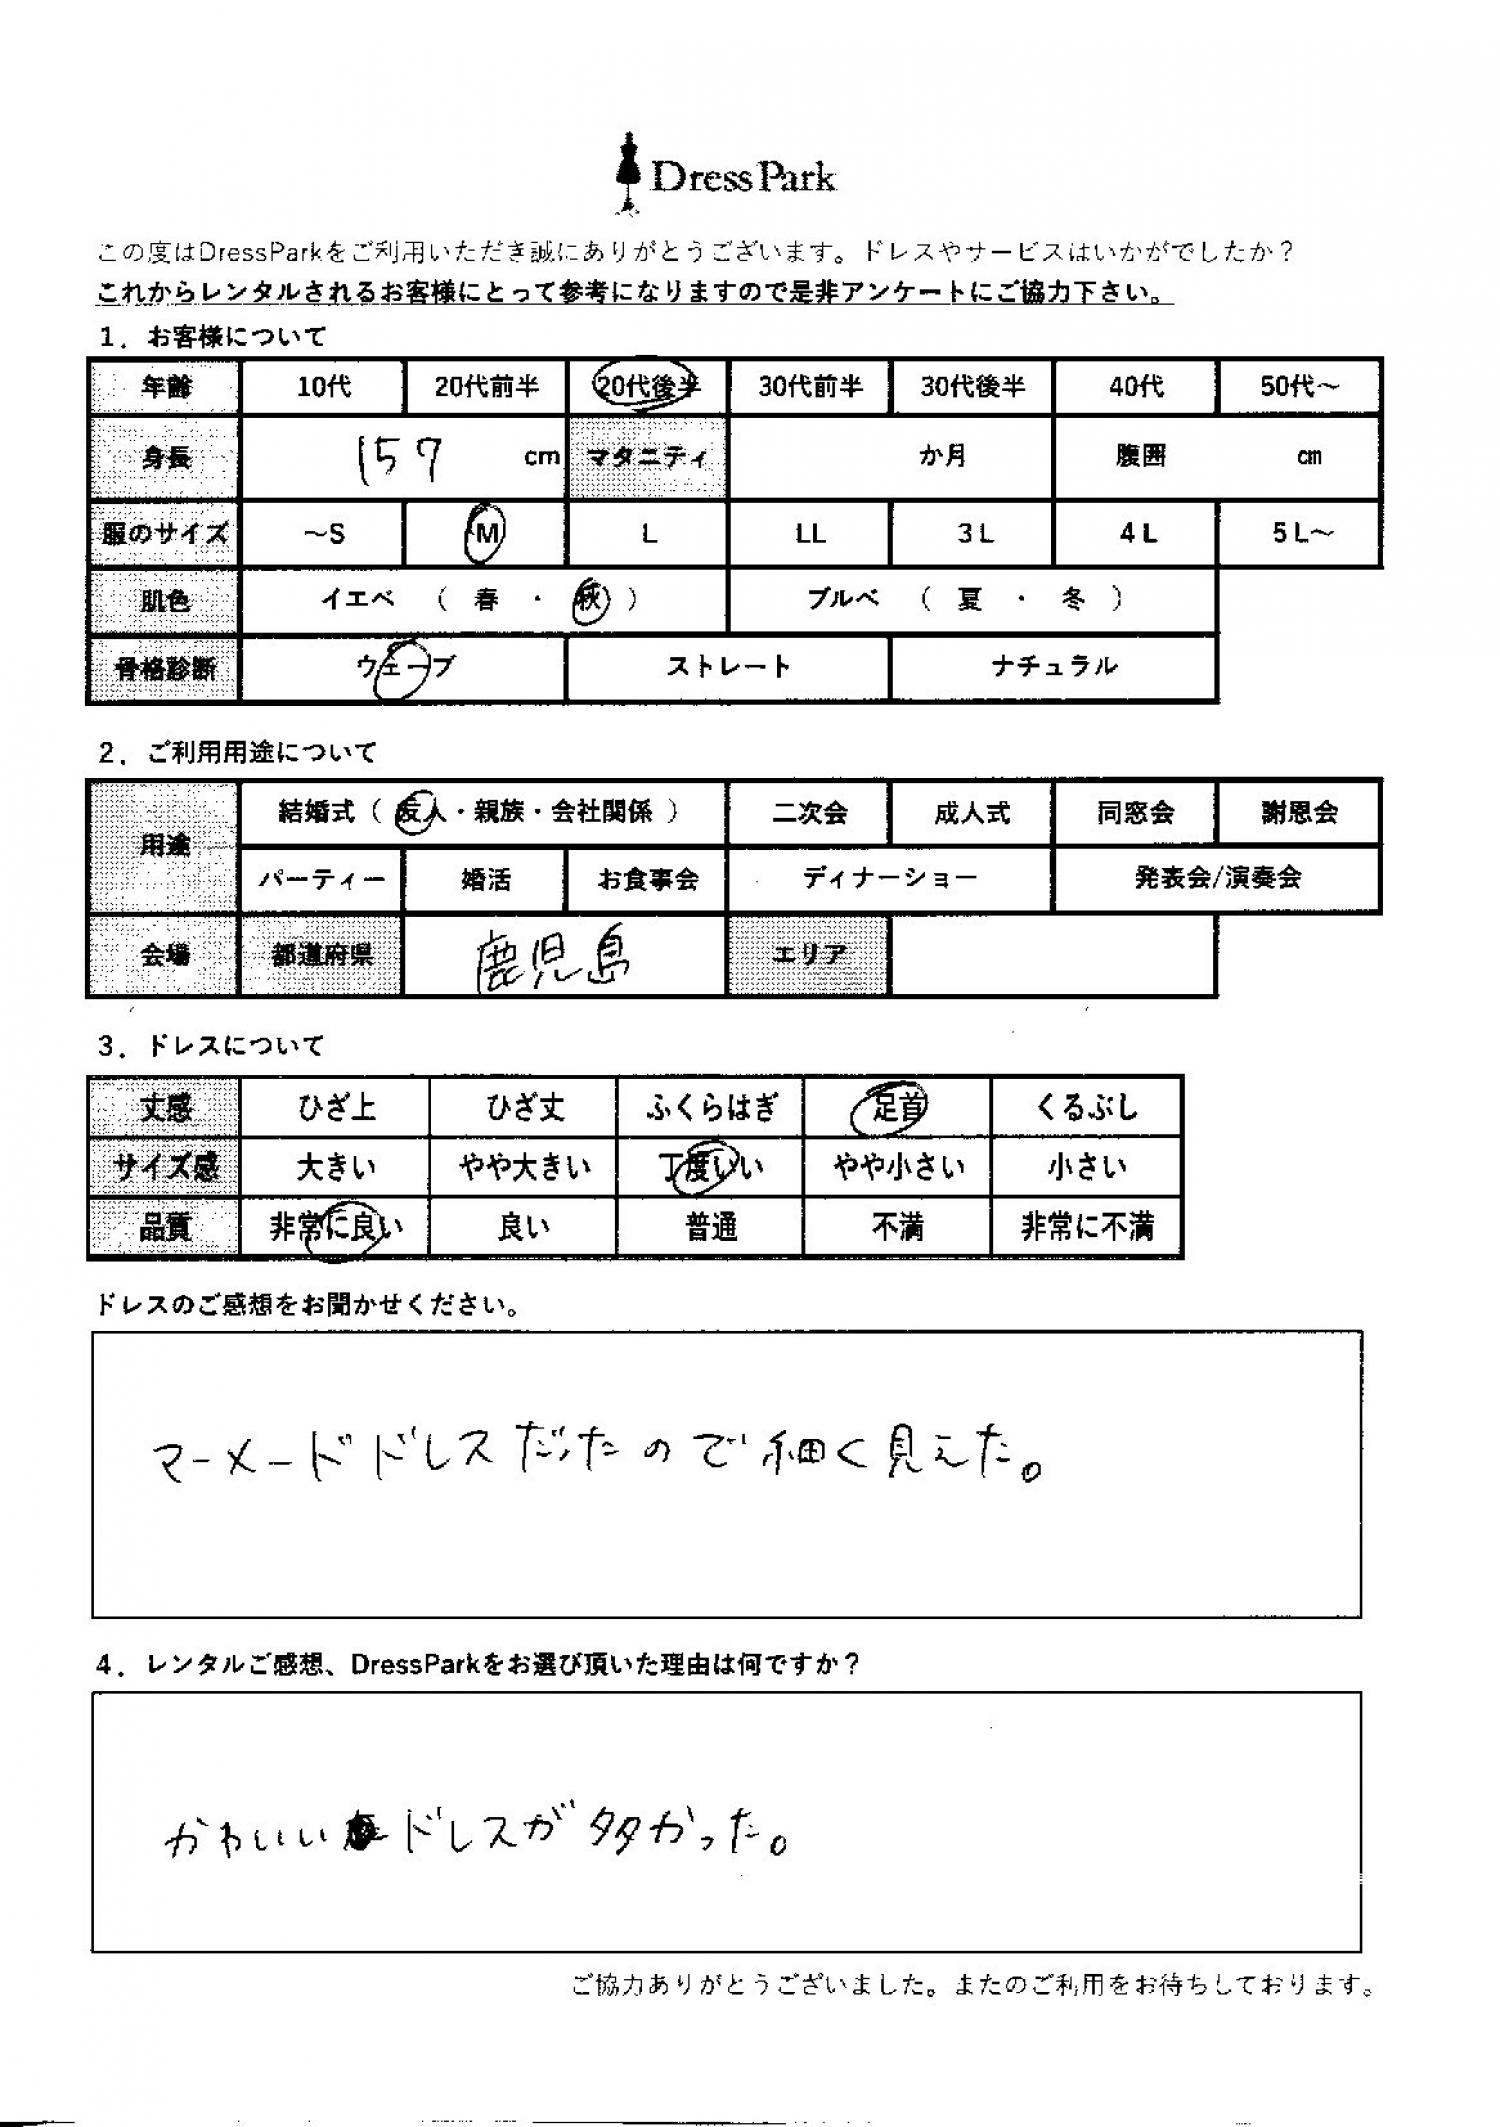 DressPark
この度はDressParkをご利用いただき誠にありがとうございます。ドレスやサービスはいかがでしたか？
これからレンタルされるお客様にとって参考になりますので是非アンケートにご協力下さい。
1．お客様について
年齢 10代 20代前半 20代後半 30代前半 30代後半 40代 50代～
身長 157 cm マタニティ か月 腹囲 cm
服のサイズ ～S M L LL 3L 4L 5L～
肌色 イエベ （ 春 ・ 秋 ） ブルベ （ 夏 ・ 冬 ）
骨格診断 ウェーブ ストレート ナチュラル
2．ご利用用途について
用途 結婚式（ 友人・親族・会社関係 ） 二次会 成人式 同窓会 謝恩会
パーティー 婚活 お食事会 ディナーショー 発表会/演奏会
会場 都道府県 鹿児島 エリア
3．ドレスについて
丈感 ひざ上 ひざ丈 ふくらはぎ 足首 くるぶし
サイズ感 大きい やや大きい 丁度いい やや小さい 小さい
品質 非常に良い 良い 普通 不満 非常に不満
ドレスのご感想をお聞かせください。
マーメードドレスだったので細く見えた。
4．レンタルご感想、DressParkをお選び頂いた理由は何ですか？
かわいいドレスが多かった。
ご協力ありがとうございました。またのご利用をお待ちしております。